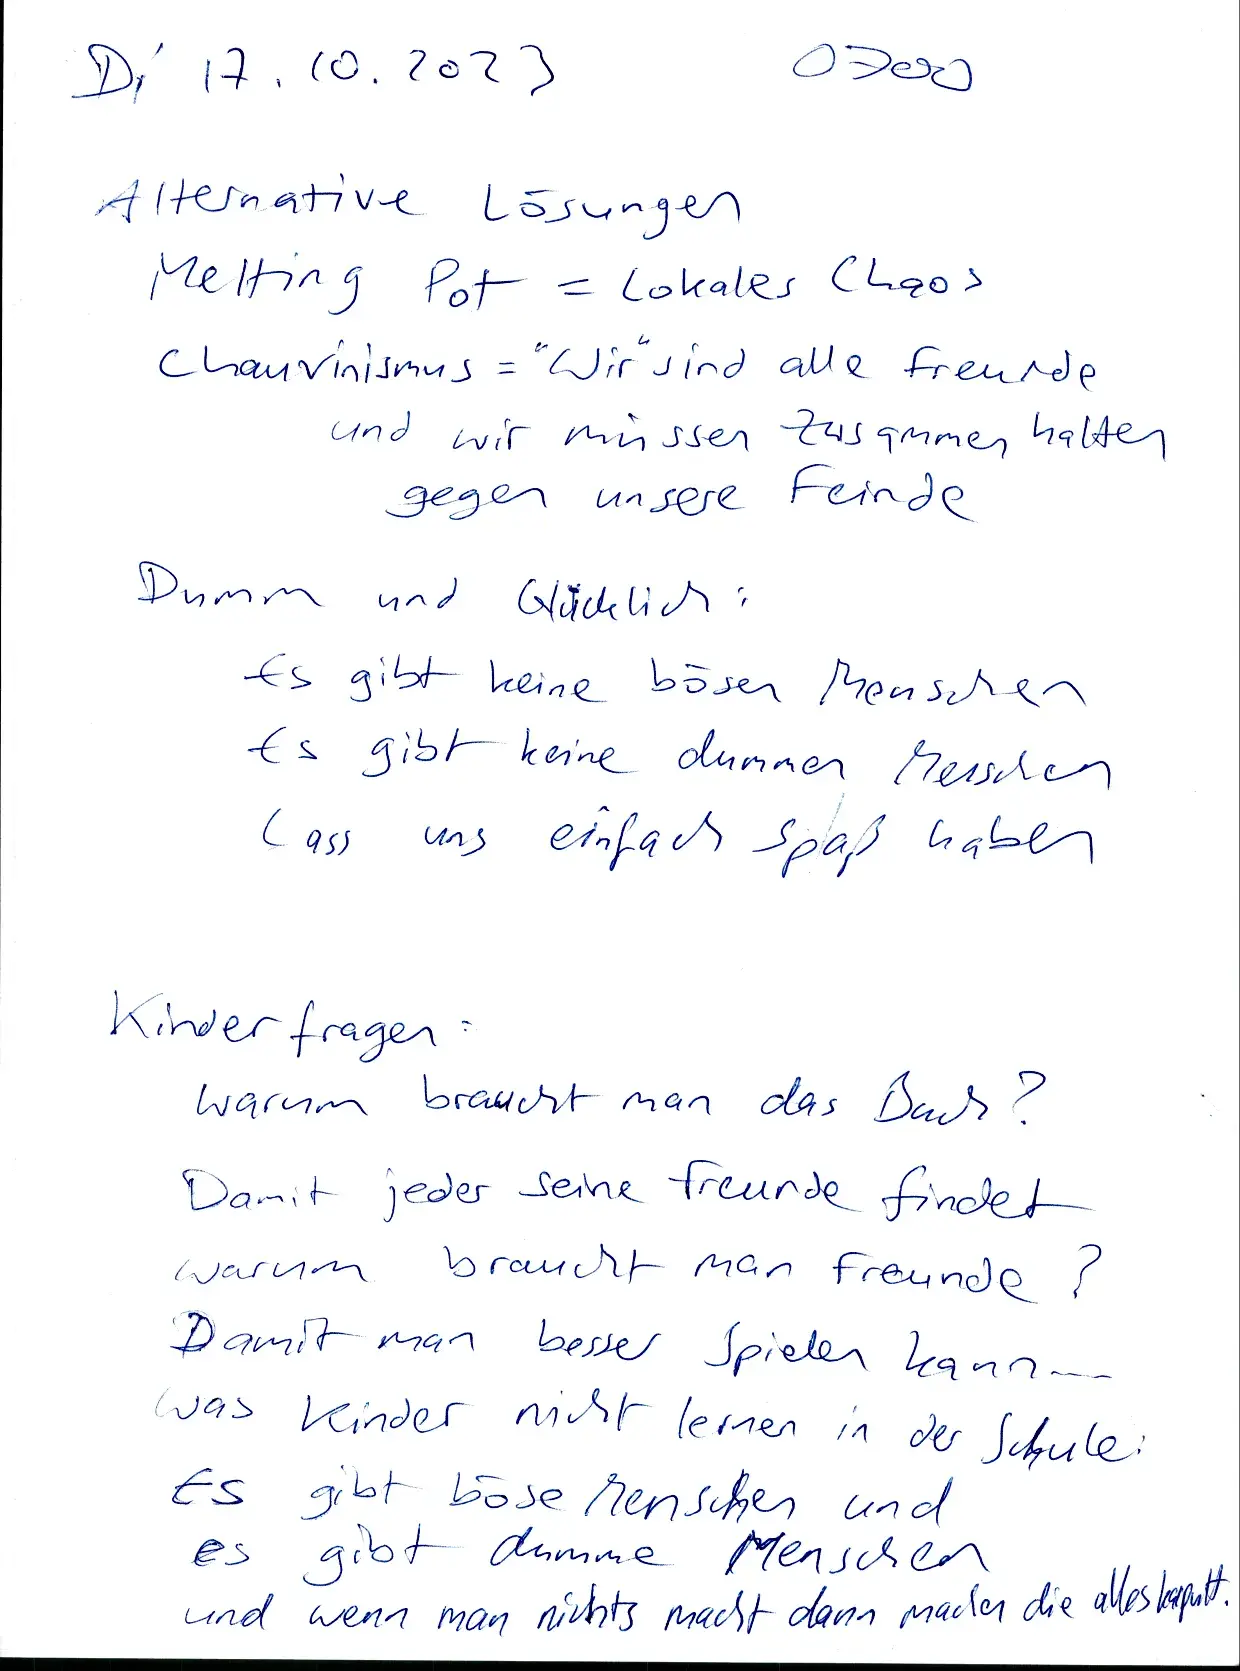 Di 17.10.2023 0700
Alternative Lösungen
Melting Pot = Lokales Chaos
Chauvinismus = "Wir" sind alle Freunde
und wir müssen zusammen halten
gegen unsere Feinde
Dumm und Glücklich:
Es gibt keine bösen Menschen
Es gibt keine dummen Menschen
Lass uns einfach Spaß haben
Kinderfragen:
warum braucht man das Buch?
Damit jeder seine Freunde findet
warum braucht man Freunde?
Damit man besser Spielen kann...
was Kinder nicht lernen in der Schule:
Es gibt böse Menschen und
es gibt dumme Menschen
und wenn man nichts macht dann machen die alles kaputt.